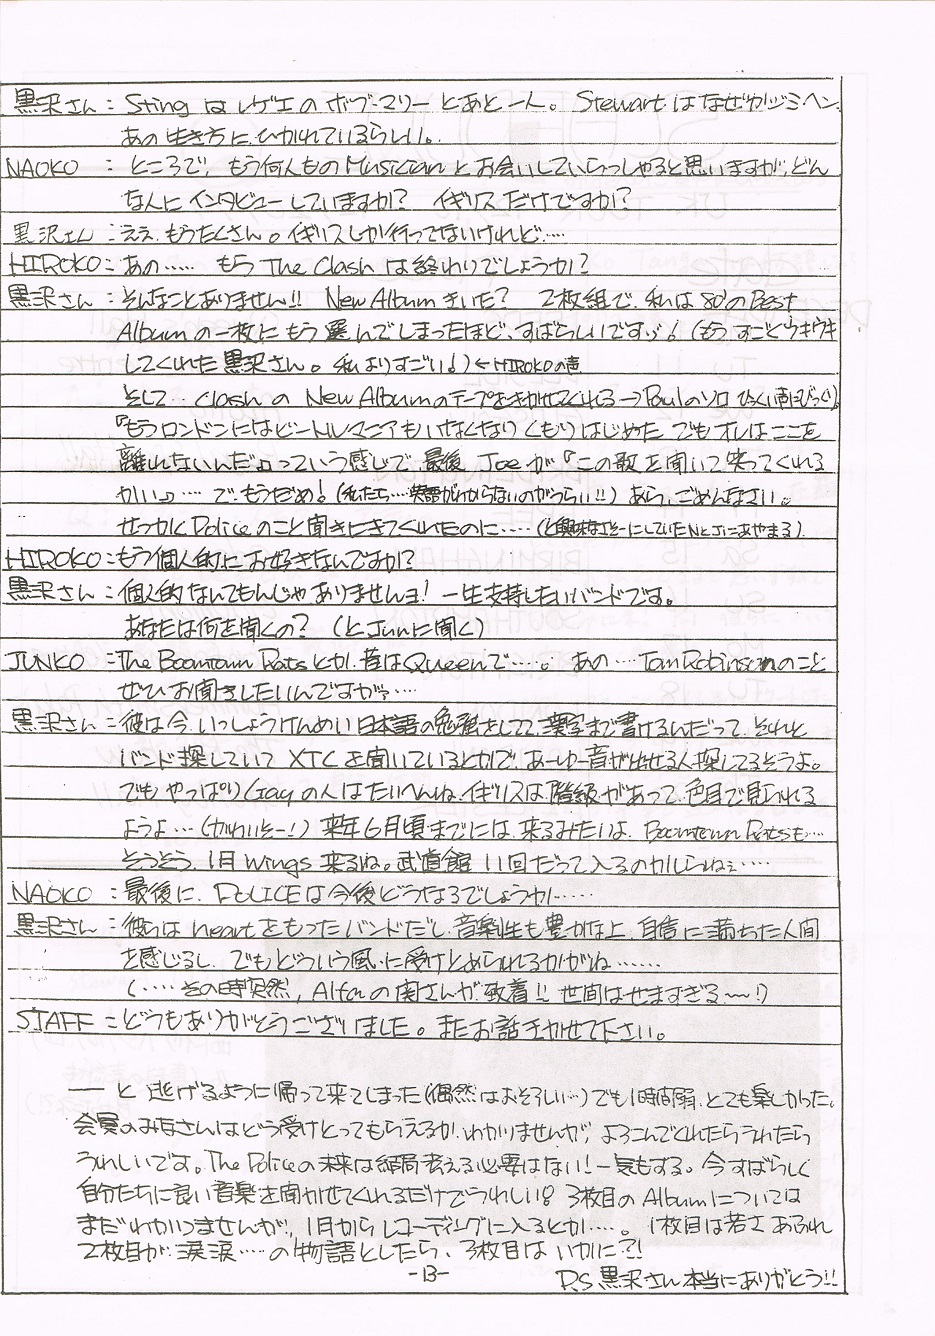 黒沢さん：Sting はレゲエのボブ・マリーとあと一人。Stewart はなぜかジミヘン。
あの生き方に、ひかれているらしい。
NAOKO：ところで、もう何人ものMusicianとお会いしていらっしゃると思いますが、どん
な人にインタビューしていますか？ イギリスだけですか？
黒沢さん：ええ、もうたくさん。イギリスしか行ってないけれど……
HIROKO：あの…… もう The Clash は終わりでしょうか？
黒沢さん：そんなことありません!! New Album きいた？ 2枚組で、私は80'のBest
Albumの一枚にもう選んでしまったほど、すばらしいですョ！（もう すごくウキウキ
してくれた黒沢さん。私よりすごい！）←HIROKOの声
そして…ClashのNew Albumのテープをきかせてくれる→Paulのソロ ひくい声にびっくり。
『もうロンドンにはビートルマニアもいなくなり くもりはじめた でもオレはここを
離れないんだ♪』っていう感じで、最後、Joeが『この歌を聞いて笑ってくれる
かい♪』…… で、もうだめ！（私たち…英語がわからないのがつらい!!）あら、ごめんなさい。
せっかくPoliceのこと聞きにきてくれたのに……（と興味なさそーにしていたNとJにあやまる）
HIROKO：もう個人的にお好きなんですか？
黒沢さん：個人的なんてもんじゃありませんョ！ 一生支持したいバンドです。
あなたは何を聞くの？ （とJunに聞く）
JUNKO：The Boomtown Ratsとか、昔はQueenで……。あの……Tom Robinsonのこと
ぜひお聞きしたいんですがァ……
黒沢さん：彼は今、いっしょうけんめい日本語の勉強をしてて、漢字まで書けるんだって。それと
バンド探していて XTCを聞いているとかで、あーゆー音が出せる人探してるそうよ。
でもやっぱりGayの人はたいへんね、イギリスは階級があって、色目で見られる
ようよ…（かわいそー！）来年6月頃までには、来るみたいよ、Boomtown Ratsも……
そうそう、1月Wings来るね。武道館 11回だって入るのかしらねぇ……
NAOKO：最後に、POLICEは今後どうなるでしょうか……
黒沢さん：彼らはheartをもったバンドだし、音楽性も豊かな上、自信に満ちた人間
を感じるし、でもどういう風に受けとめられるかがね……
（……その時突然、Alfaの奥さんが致着!! 世間はせますぎる〜!）
STAFF：どうもありがとうございました。またお話きかせて下さい。
── と 逃げるように帰って来てしまった（偶然はおそろしい…）でも1時間弱、とても楽しかった。
会員のみなさんはどう受けとってもらえるか、わかりませんが、よろこんでくれたらうれたら
うれしいです。The Policeの未来は結局考える必要はない！一気もする。今すばらしく
自分たちに良い音楽を聞かせてくれるだけでうれしい！ 3枚目のAlbumについては
まだわかりませんが、1月からレコーディングに入るとか……。1枚目は若さあふれ
2枚目が涙涙……の物語としたら、3枚目はいかに?!
-13-
P.S 黒沢さん本当にありがとう!!